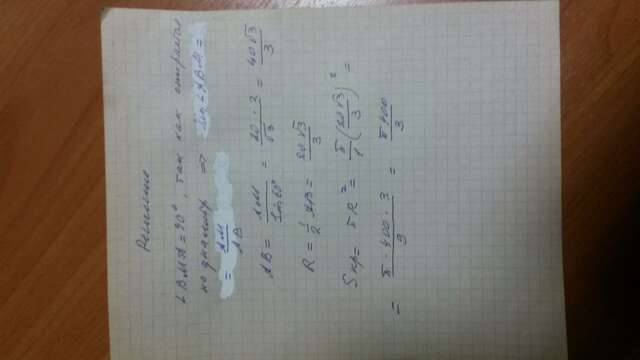 Решение
∠BMA = 90°, так как опирается
на диаметр ⇒ Sin∠ABM =
= AM/AB
AB = AM/Sin60° = 20·2/√3 = 40√3/3
R = 1/2 AB = 20√3/3
Sкр = πR² = π/1 (20√3/3)² =
= π·400·3/9 = π400/3